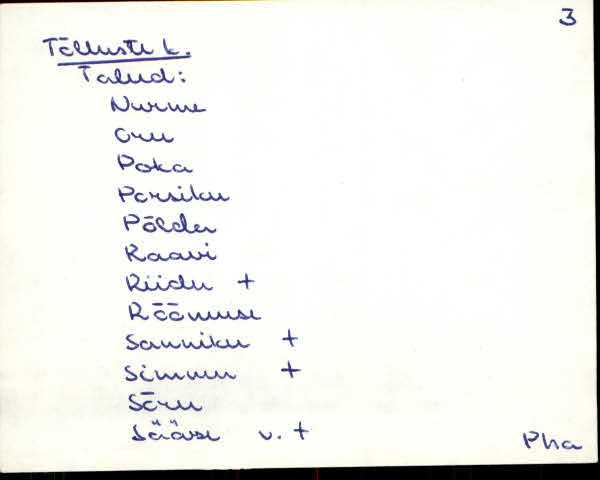 3
Tõlluste k.
Talud:
Nurme
Oru
Poka
Porsiku
Põldea
Raavi
Riidu +
Rõõmuse
Sanniku +
Simmu +
Sõru
Sääse v. +
Pha